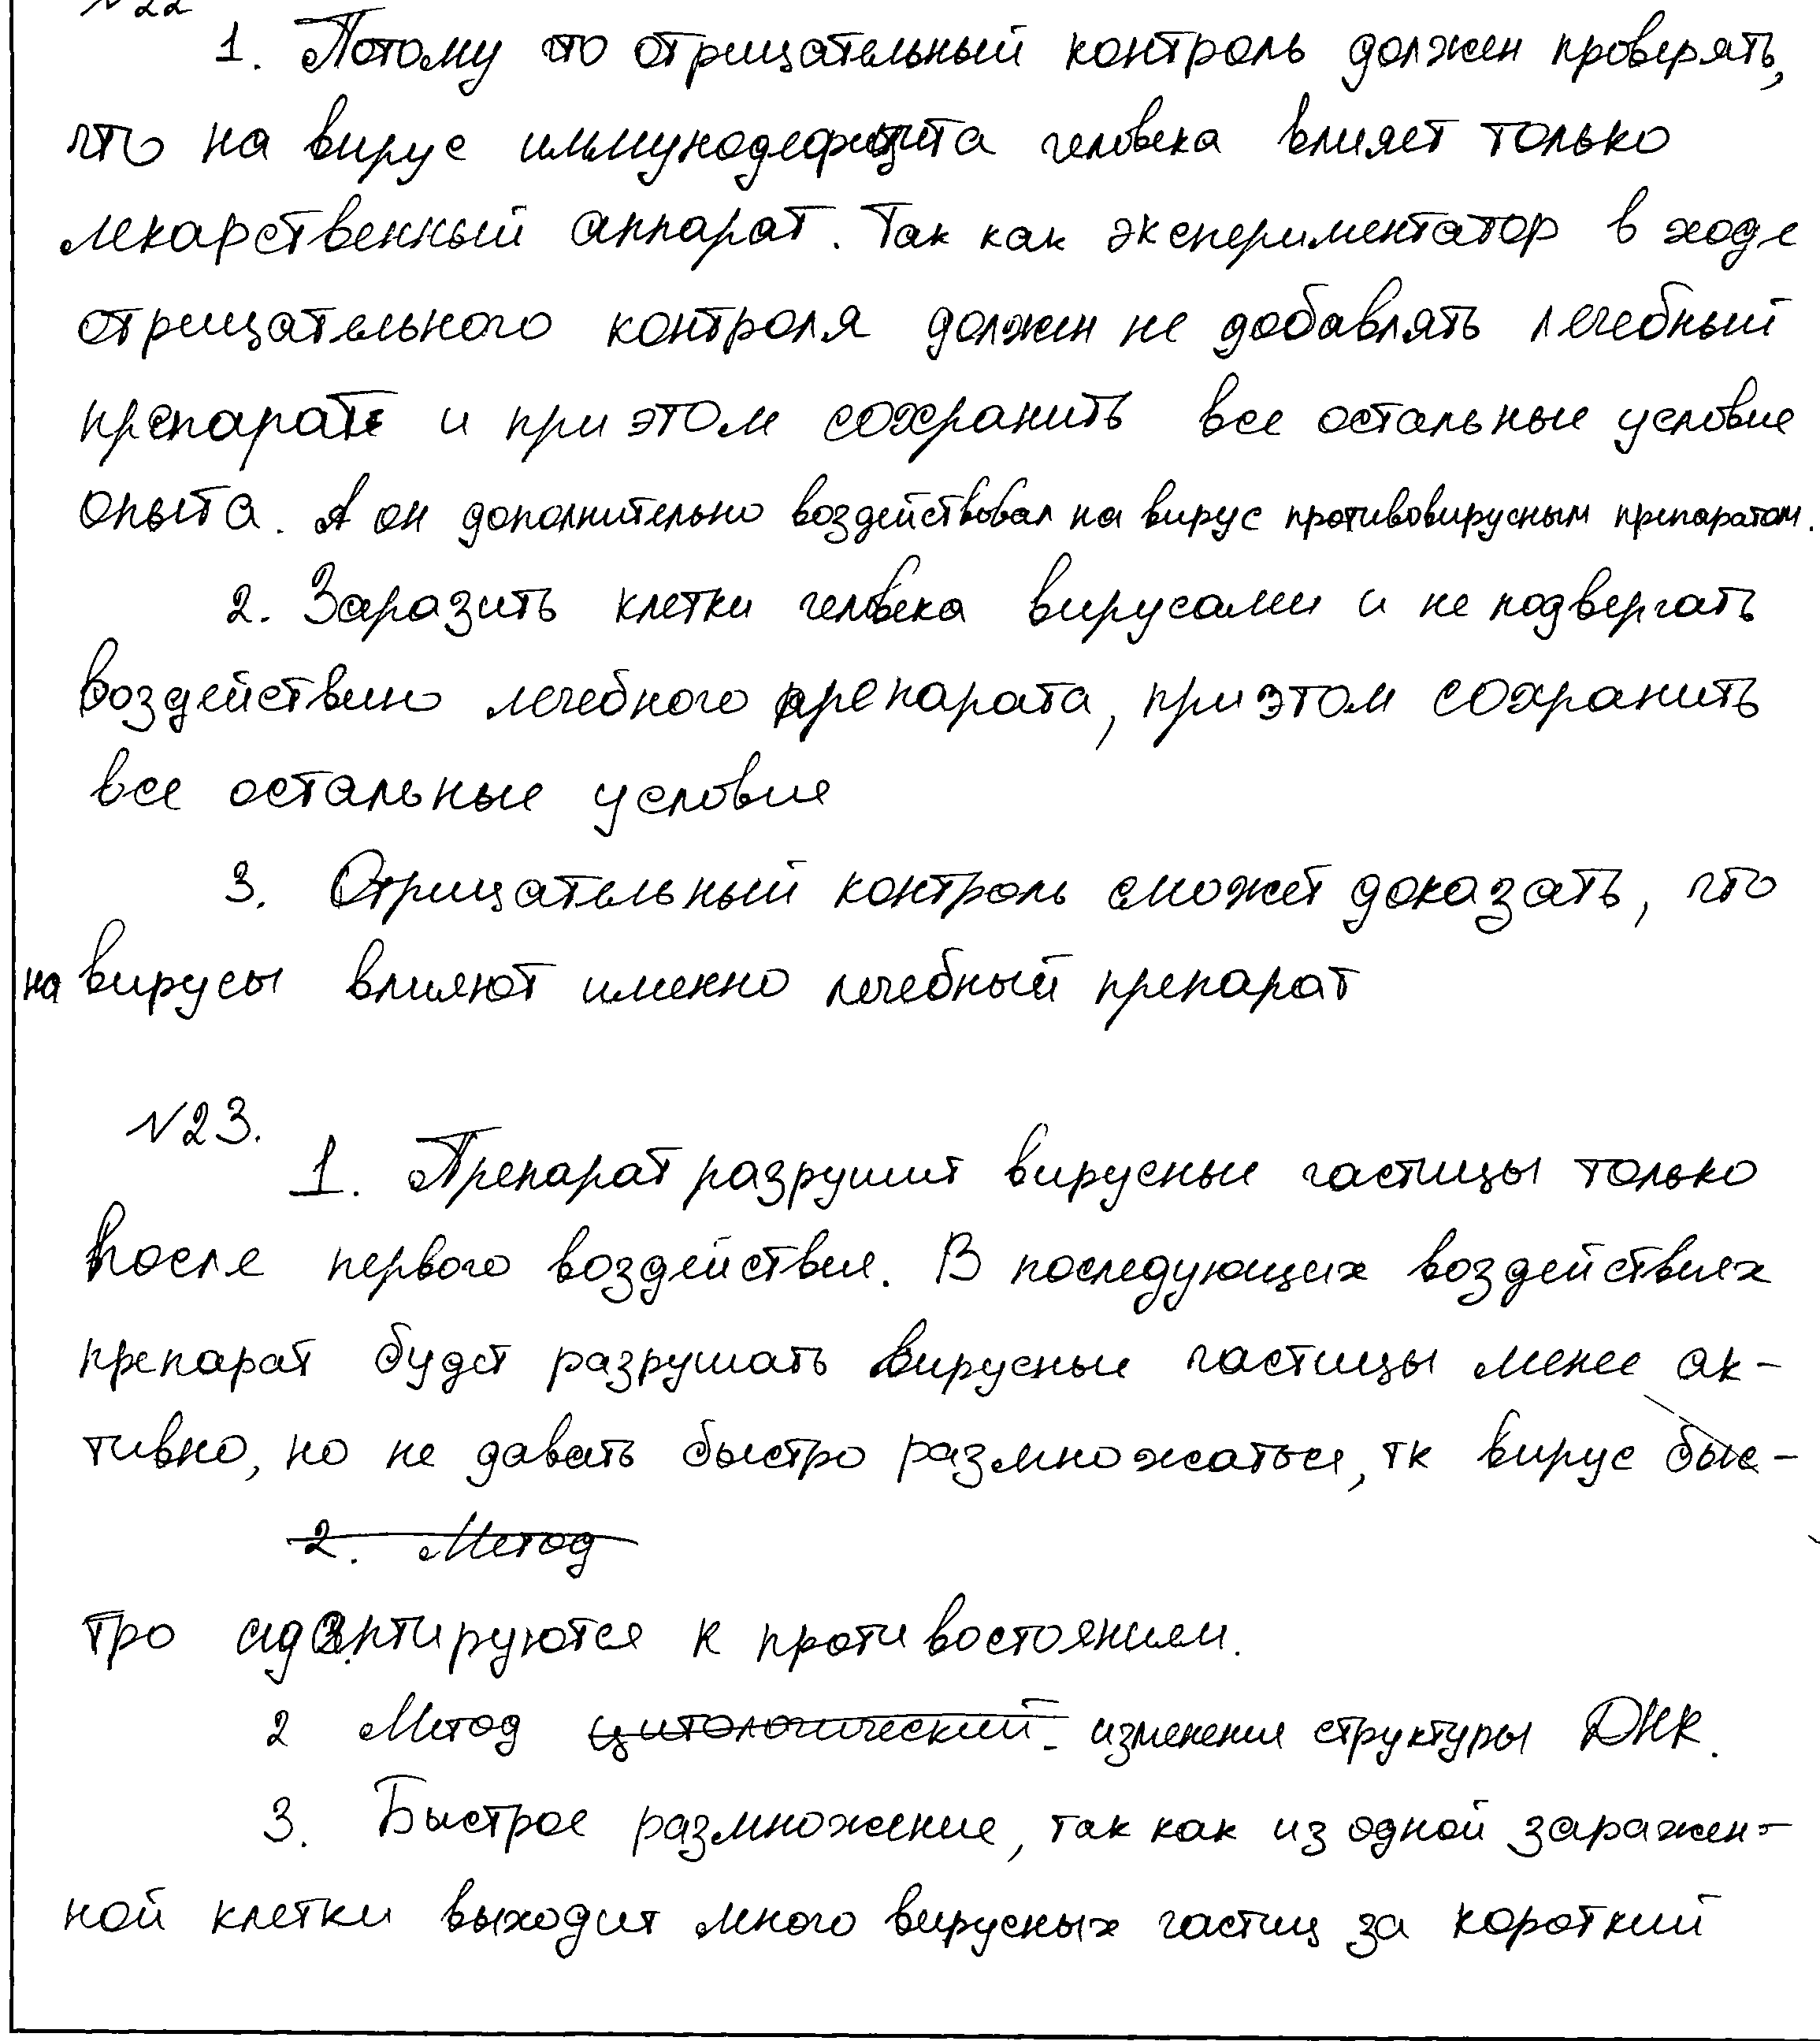 №22
1. Потому что отрицательный контроль должен проверять,
что на вирус иммунодефицита человека влияет только
лекарственный аппарат. Так как экспериментатор в ходе
отрицательного контроля должен не добавлять лечебный
препарат и при этом сохранить все остальные условие
опыта. А он дополнительно воздействовал на вирус противовирусным препаратом.
2. Заразить клетки человека вирусами и не подвергать
воздействию лечебного препарата, при этом сохранить
все остальные условие
3. Отрицательный контроль сможет доказать, что
на вирусы влияют именно лечебный препарат
№23.
1. Препарат разрушит вирусные частицы только
после первого воздействия. В последующих воздействиях
препарат будет разрушать вирусные частицы менее ак-
тивно, но не давать быстро размножаться, тк вирус быс-
2. Метод
тро адаптируются к противостояниям.
2 Метод цитологический - изменения структуры ДНК.
3. Быстрое размножение, так как из одной заражен-
ной клетки выходит много вирусных частиц за короткий